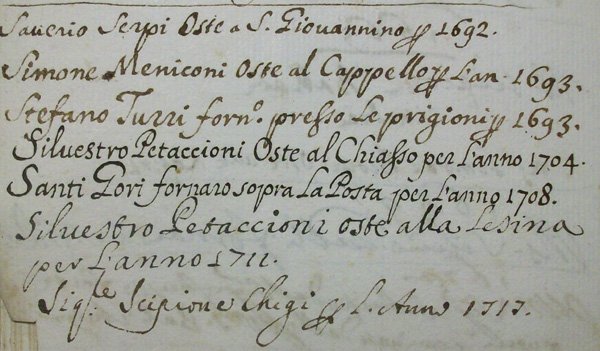 Saverio Serpi Oste a S. Giovannino p 1692.
Simone Meniconi Oste al Cappello p L'an 1693.
Stefano Turri forn.o presso Le prigioni p 1693.
Silvestro Petaccioni Oste al Chiasso per L'anno 1704.
Santi Gori fornaro sopra La Posta per L'anno 1708.
Silvestro Petaccioni oste alla Lesina
per L'anno 1711.
Sig.re Scipione Chigi p L. Anno 1717.